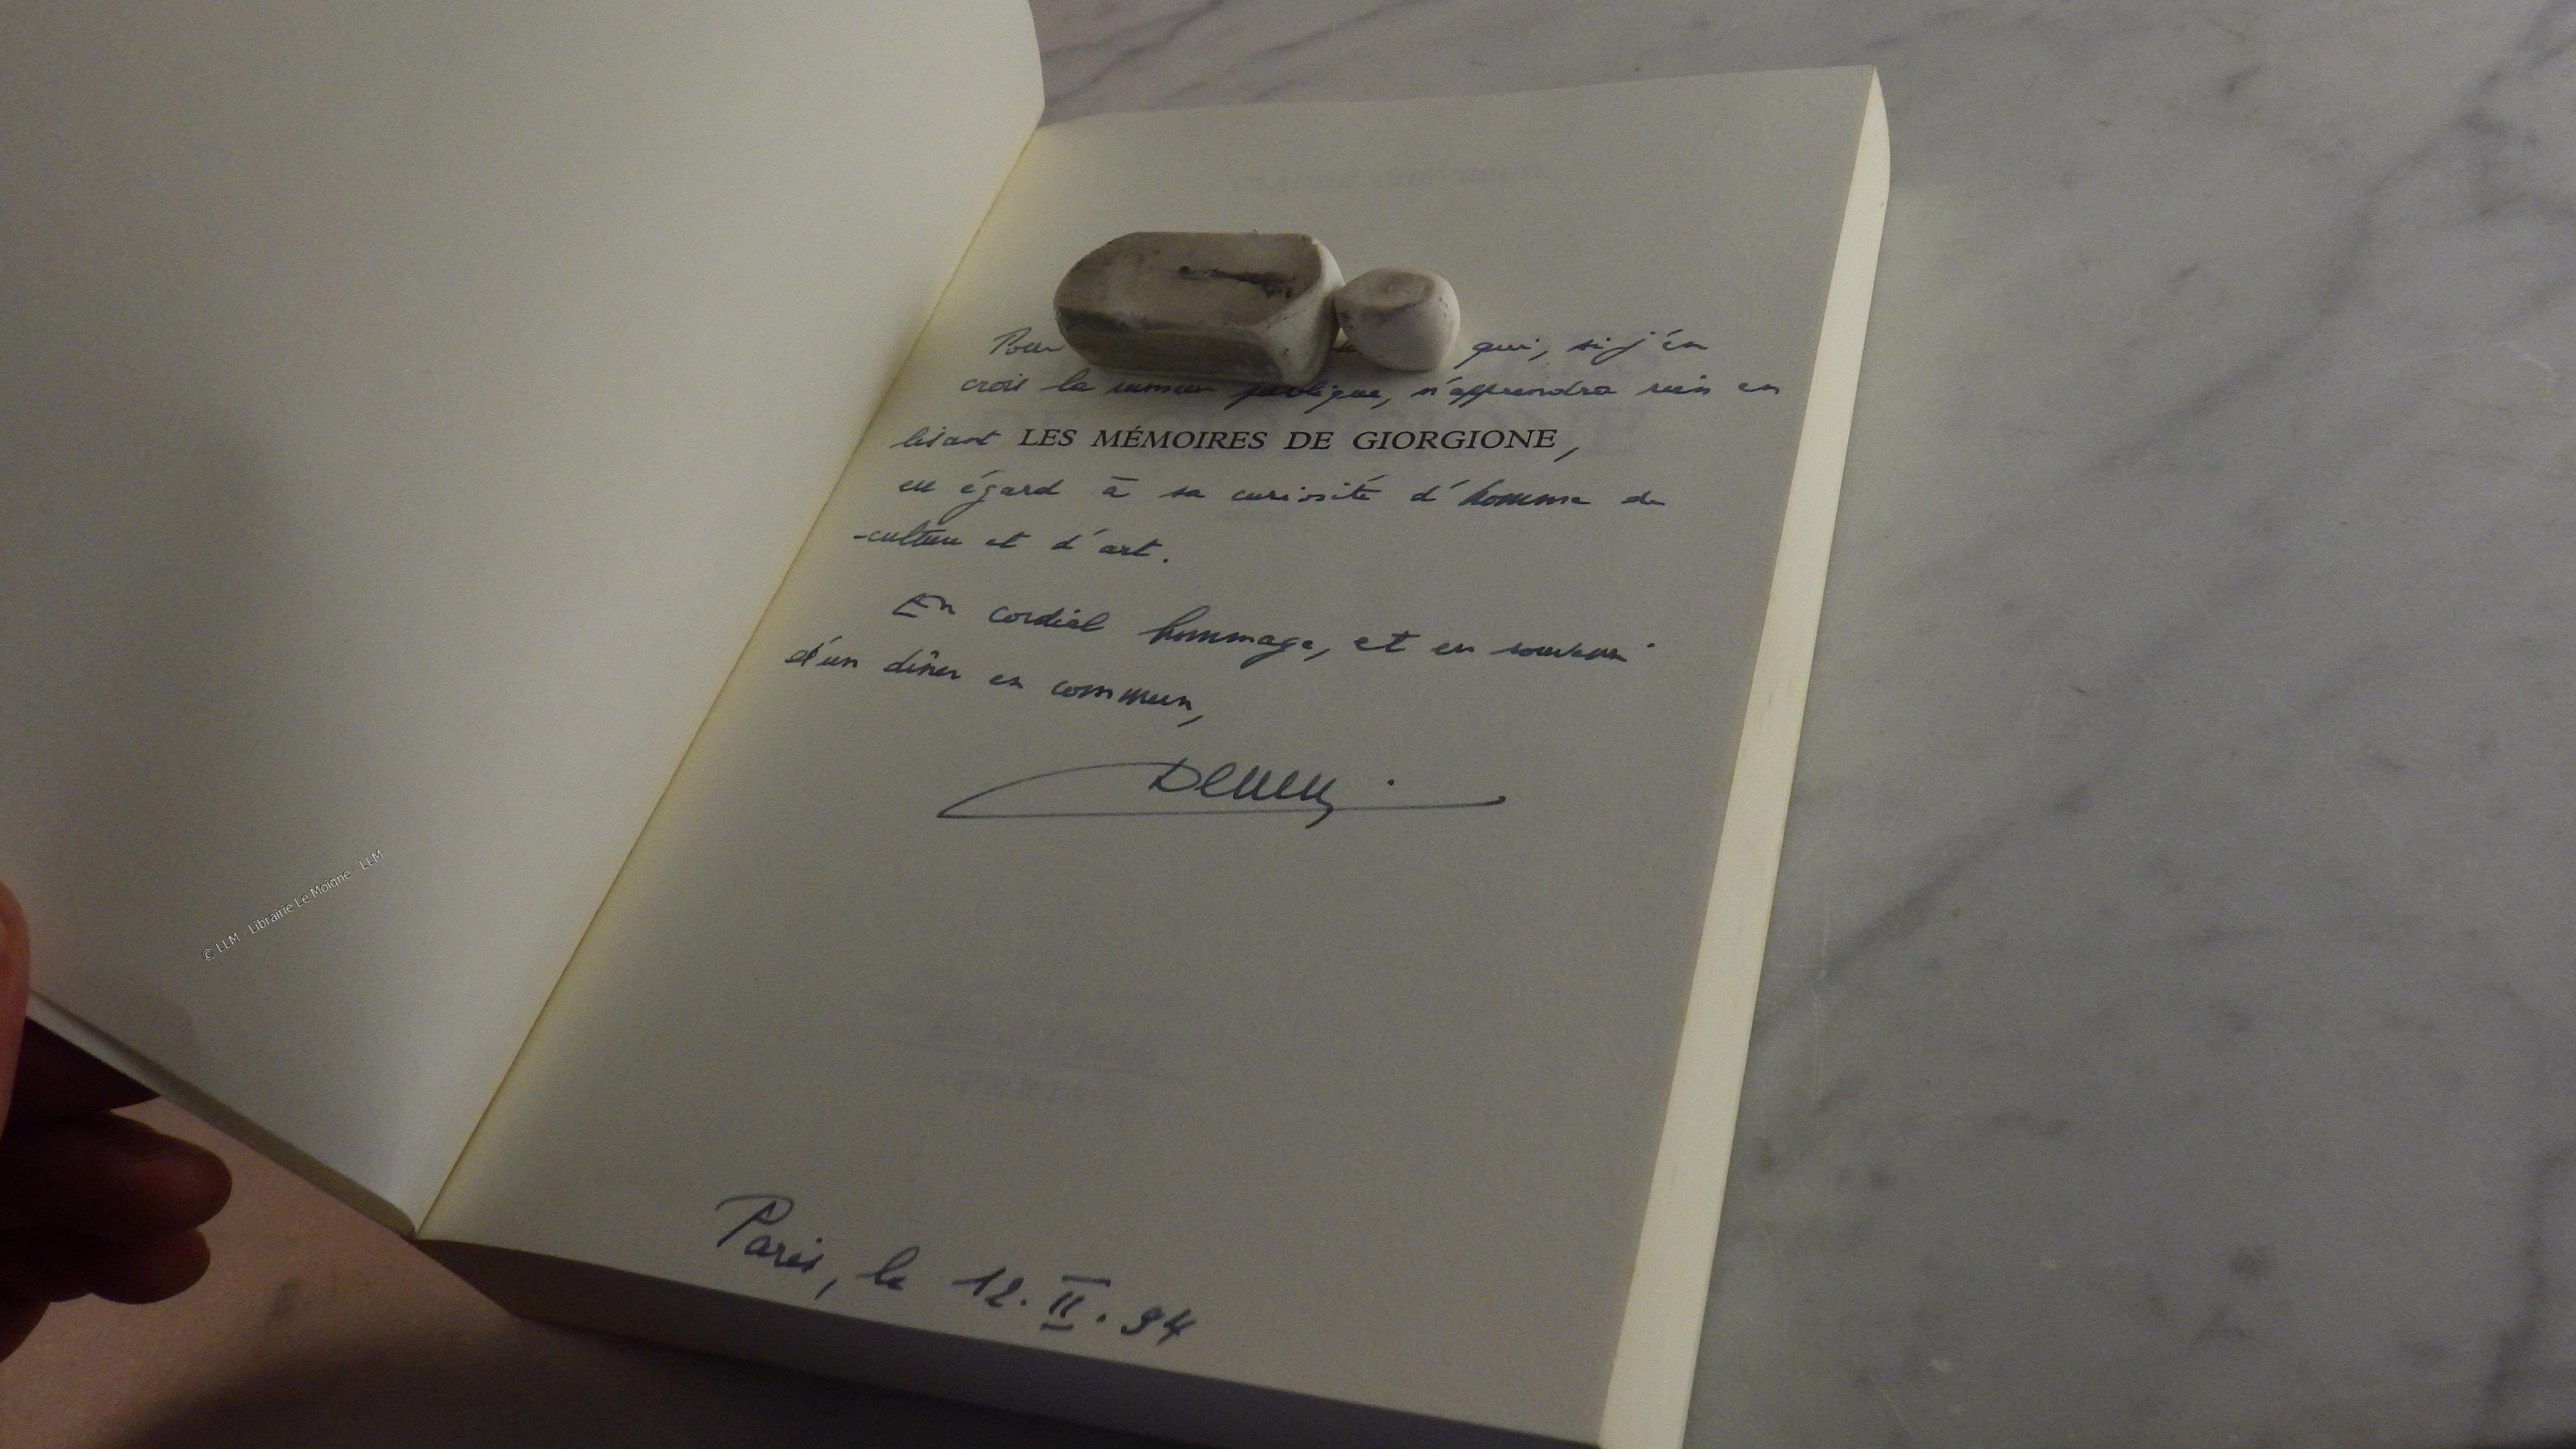 Pour qui, si j'en
crois la rumeur publique, n'apprendra rien en
lisant LES MÉMOIRES DE GIORGIONE,
eu égard à sa curiosité d'homme de
culture et d'art.
En cordial hommage, et en souvenir
d'un dîner en commun,
Paris, le 12.II.94
© LLM - Librairie Le Moigne - LLM